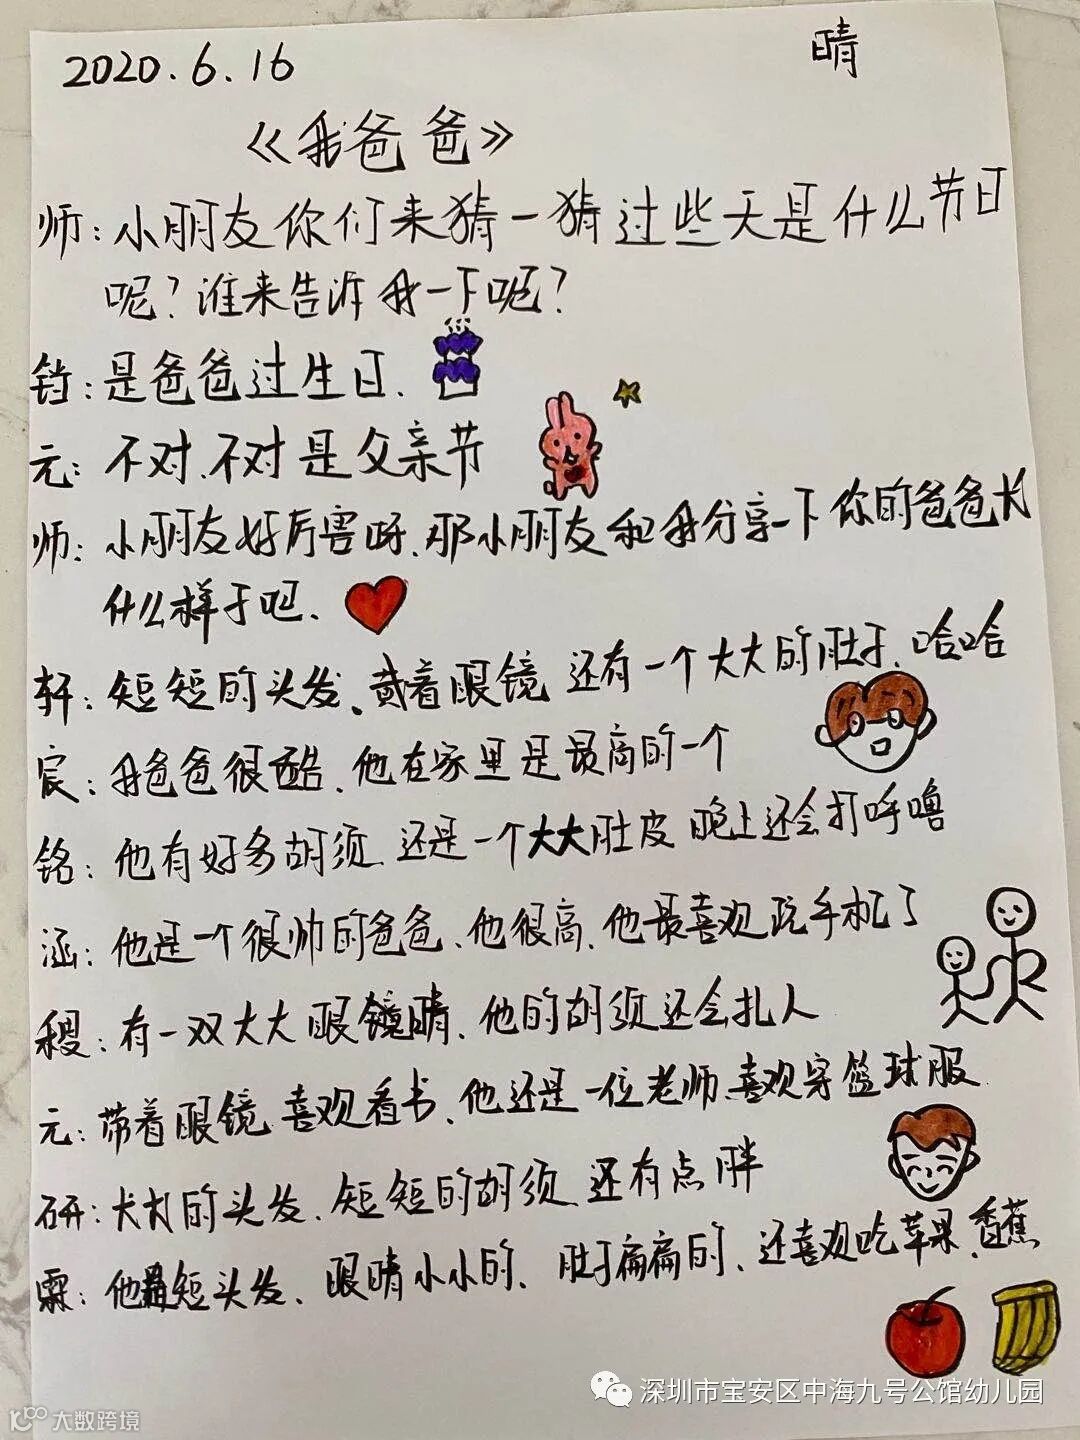 2020.6.16
晴
《我爸爸》
师：小朋友你们来猜一猜过些天是什么节日
呢？谁来告诉我一下呢？
铛：是爸爸过生日.
元：不对、不对是父亲节
师：小朋友好厉害呀、那小朋友和我分享一下你的爸爸长
什么样子吧、
轩：短短的头发、戴着眼镜 还有一个大大的肚子、哈哈
宸：我爸爸很酷、他在家里是最高的一个
铭：他有好多胡须、还是一个大大肚皮 晚上还会打呼噜
涵：他是一个很帅的爸爸、他很高、他最喜欢玩手机了
稷：有一双大大眼镜睛、他的胡须还会扎人
元：带着眼镜、喜欢看书、他还是一位老师、喜欢穿篮球服
研：长长的头发、短短的胡须、还有点胖
霖：他是短头发、眼睛小小的、肚子扁扁的、还喜欢吃苹果、香蕉
深圳市宝安区中海九号公馆幼儿园
大数跨境